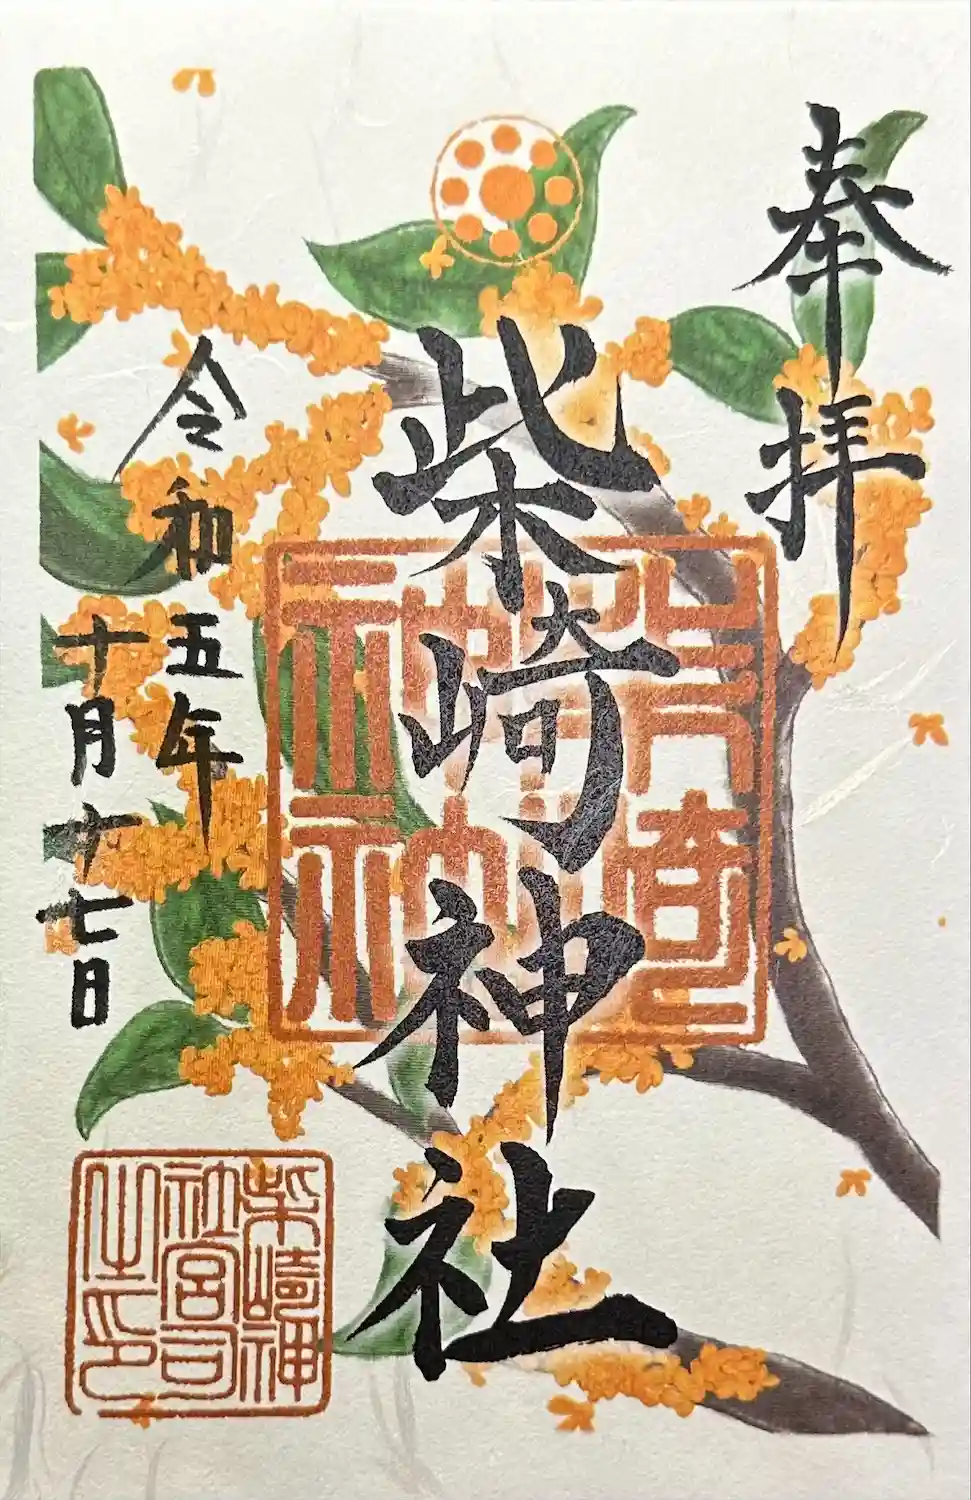 奉拝
柴崎神社
令和五年
十月十七日
柴崎神
社宮司
之印